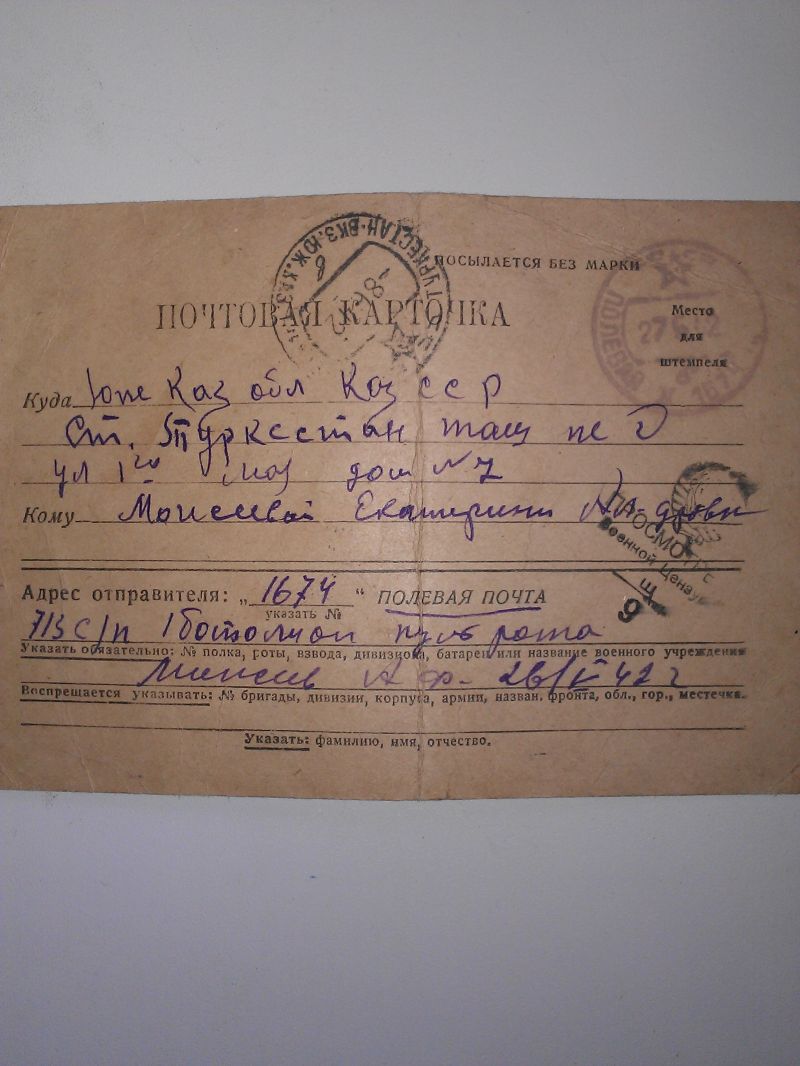 ТУРКЕСТАН-ВКЗ.ЮЖ.КАЗ
ПОСЫЛАЕТСЯ БЕЗ МАРКИ
ПОЧТОВАЯ КАРТОЧКА
Место
для
штемпеля
ПОЛЕВАЯ
1674
Куда Юже Каз обл Каз ССР
Ст. Туркестан таш
ул 1го дом №7
Кому Моисеевой Екатерини
ПРОСМОТРЕ
Военной Цензу
Адрес отправителя: „1674“ ПОЛЕВАЯ ПОЧТА
указать №
713 с/п 1 батолион пуль рота
Указать обязательно: № полка, роты, взвода, дивизиона, батареи или название военного учреждения
А Ф. 26/V 42 г
Воспрещается указывать: № бригады, дивизии, корпуса, армии, назван. фронта, обл., гор., местечка.
Указать: фамилию, имя, отчество.